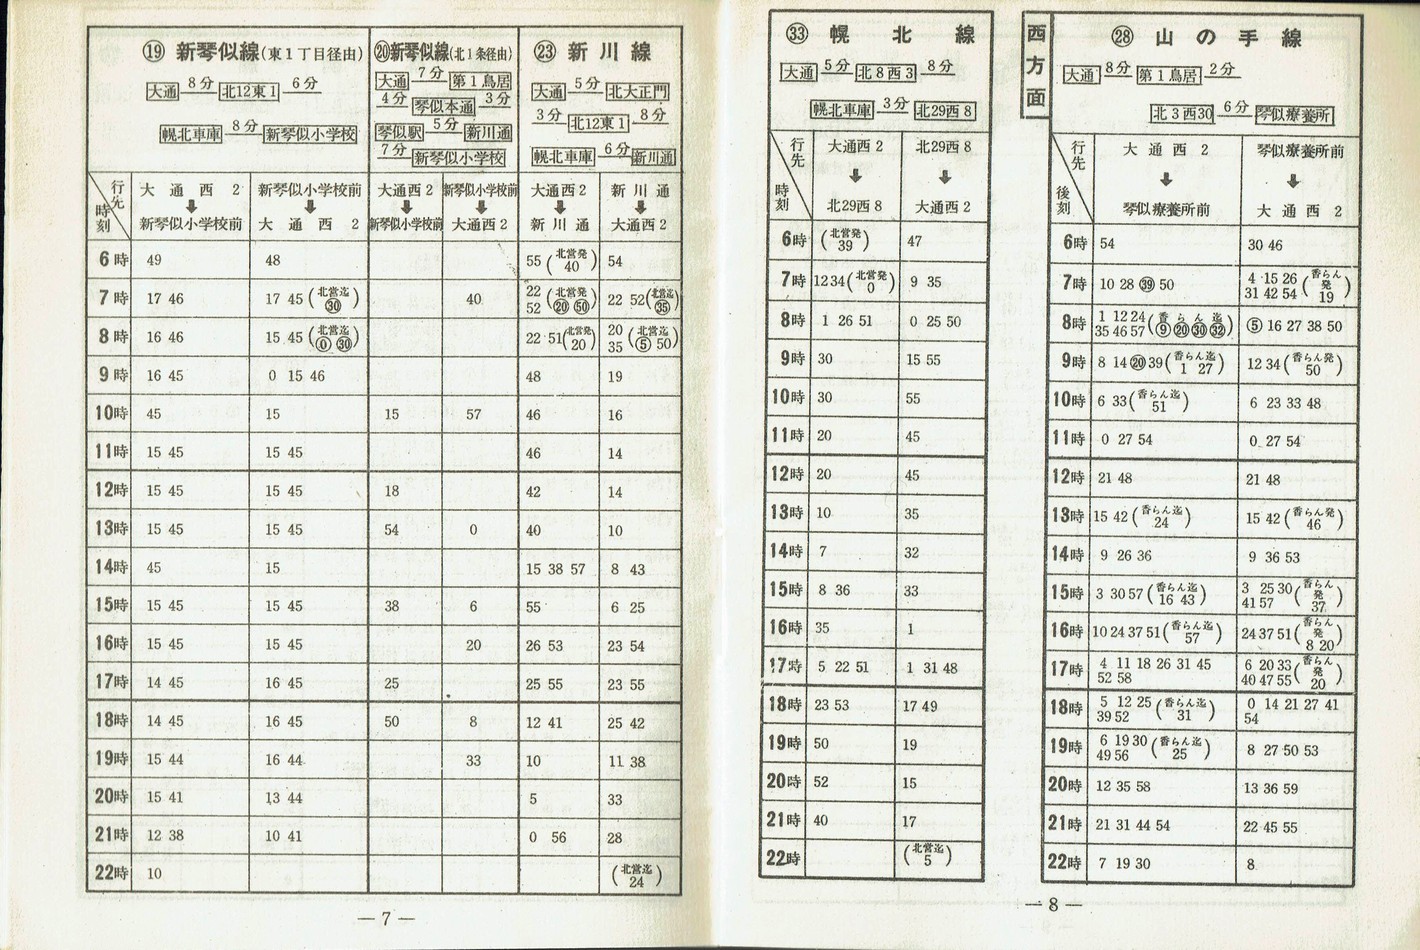 ⑲ 新琴似線(東1丁目経由)
大通 8分 北12東1 6分
幌北車庫 8分 新琴似小学校
行先 時刻 大通西2 ⬇ 新琴似小学校前 新琴似小学校前 ⬇ 大通西2
6時 49 48
7時 17 46 17 45(北営迄 ㉚)
8時 16 46 15 45(北営迄 ⓪ ㉚)
9時 16 45 0 15 46
10時 45 15
11時 15 45 15 45
12時 15 45 15 45
13時 15 45 15 45
14時 45 15
15時 15 45 15 45
16時 15 45 15 45
17時 14 45 16 45
18時 14 45 16 45
19時 15 44 16 44
20時 15 41 13 44
21時 12 38 10 41
22時 10
⑳新琴似線(北1条経由)
大通 7分 第1鳥居
4分 琴似本通 3分
琴似駅 5分 新川通
7分 新琴似小学校
大通西2 ⬇ 新琴似小学校前 新琴似小学校前 ⬇ 大通西2
40
15 57
18
54 0
38 6
20
25
50 8
33
㉓ 新川線
大通 5分 北大正門
3分 北12東1 8分
幌北車庫 6分 新川通
大通西2 ⬇ 新川通 新川通 ⬇ 大通西2
55(北営発 40) 54
22 52(北営発 ⑳ ㊿) 22 52(北営迄 ㉟)
22 51(北営発 20) 20 35(北営迄 ⑤ 50)
48 19
46 16
46 14
42 14
40 10
15 38 57 8 43
55 6 25
26 53 23 54
25 55 23 55
12 41 25 42
10 11 38
5 33
0 56 28
(北営迄 24)
—7—
㉝ 幌北線
大通 5分 北8西3 8分
幌北車庫 3分 北29西8
行先 時刻 大通西2 ⬇ 北29西8 北29西8 ⬇ 大通西2
6時 (北営発 39) 47
7時 12 34(北営発 0) 9 35
8時 1 26 51 0 25 50
9時 30 15 55
10時 30 55
11時 20 45
12時 20 45
13時 10 35
14時 7 32
15時 8 36 33
16時 35 1
17時 5 22 51 1 31 48
18時 23 53 17 49
19時 50 19
20時 52 15
21時 40 17
22時 (北営迄 5)
西方面
㉘ 山の手線
大通 8分 第1鳥居 2分
北3西30 6分 琴似療養所
行先 後刻 大通西2 ⬇ 琴似療養所前 琴似療養所前 ⬇ 大通西2
6時 54 30 46
7時 10 28 ㊴ 50 4 15 26 31 42 54(香らん発 19)
8時 1 12 24 35 46 57(香らん迄 ⑨ ⑳ ㉚ ㉜) ⑤ 16 27 38 50
9時 8 14 ⑳ 39(香らん迄 1 27) 12 34(香らん発 50)
10時 6 33(香らん迄 51) 6 23 33 48
11時 0 27 54 0 27 54
12時 21 48 21 48
13時 15 42(香らん迄 24) 15 42(香らん発 46)
14時 9 26 36 9 36 53
15時 3 30 57(香らん迄 16 43) 3 25 30 41 57(香らん発 37)
16時 10 24 37 51(香らん迄 57) 24 37 51(香らん発 8 20)
17時 4 11 18 26 31 45 52 58 6 20 33 40 47 55(香らん発 20)
18時 5 12 25 39 52(香らん迄 31) 0 14 21 27 41 54
19時 6 19 30 49 56(香らん迄 25) 8 27 50 53
20時 12 35 58 13 36 59
21時 21 31 44 54 22 45 55
22時 7 19 30 8
—8—